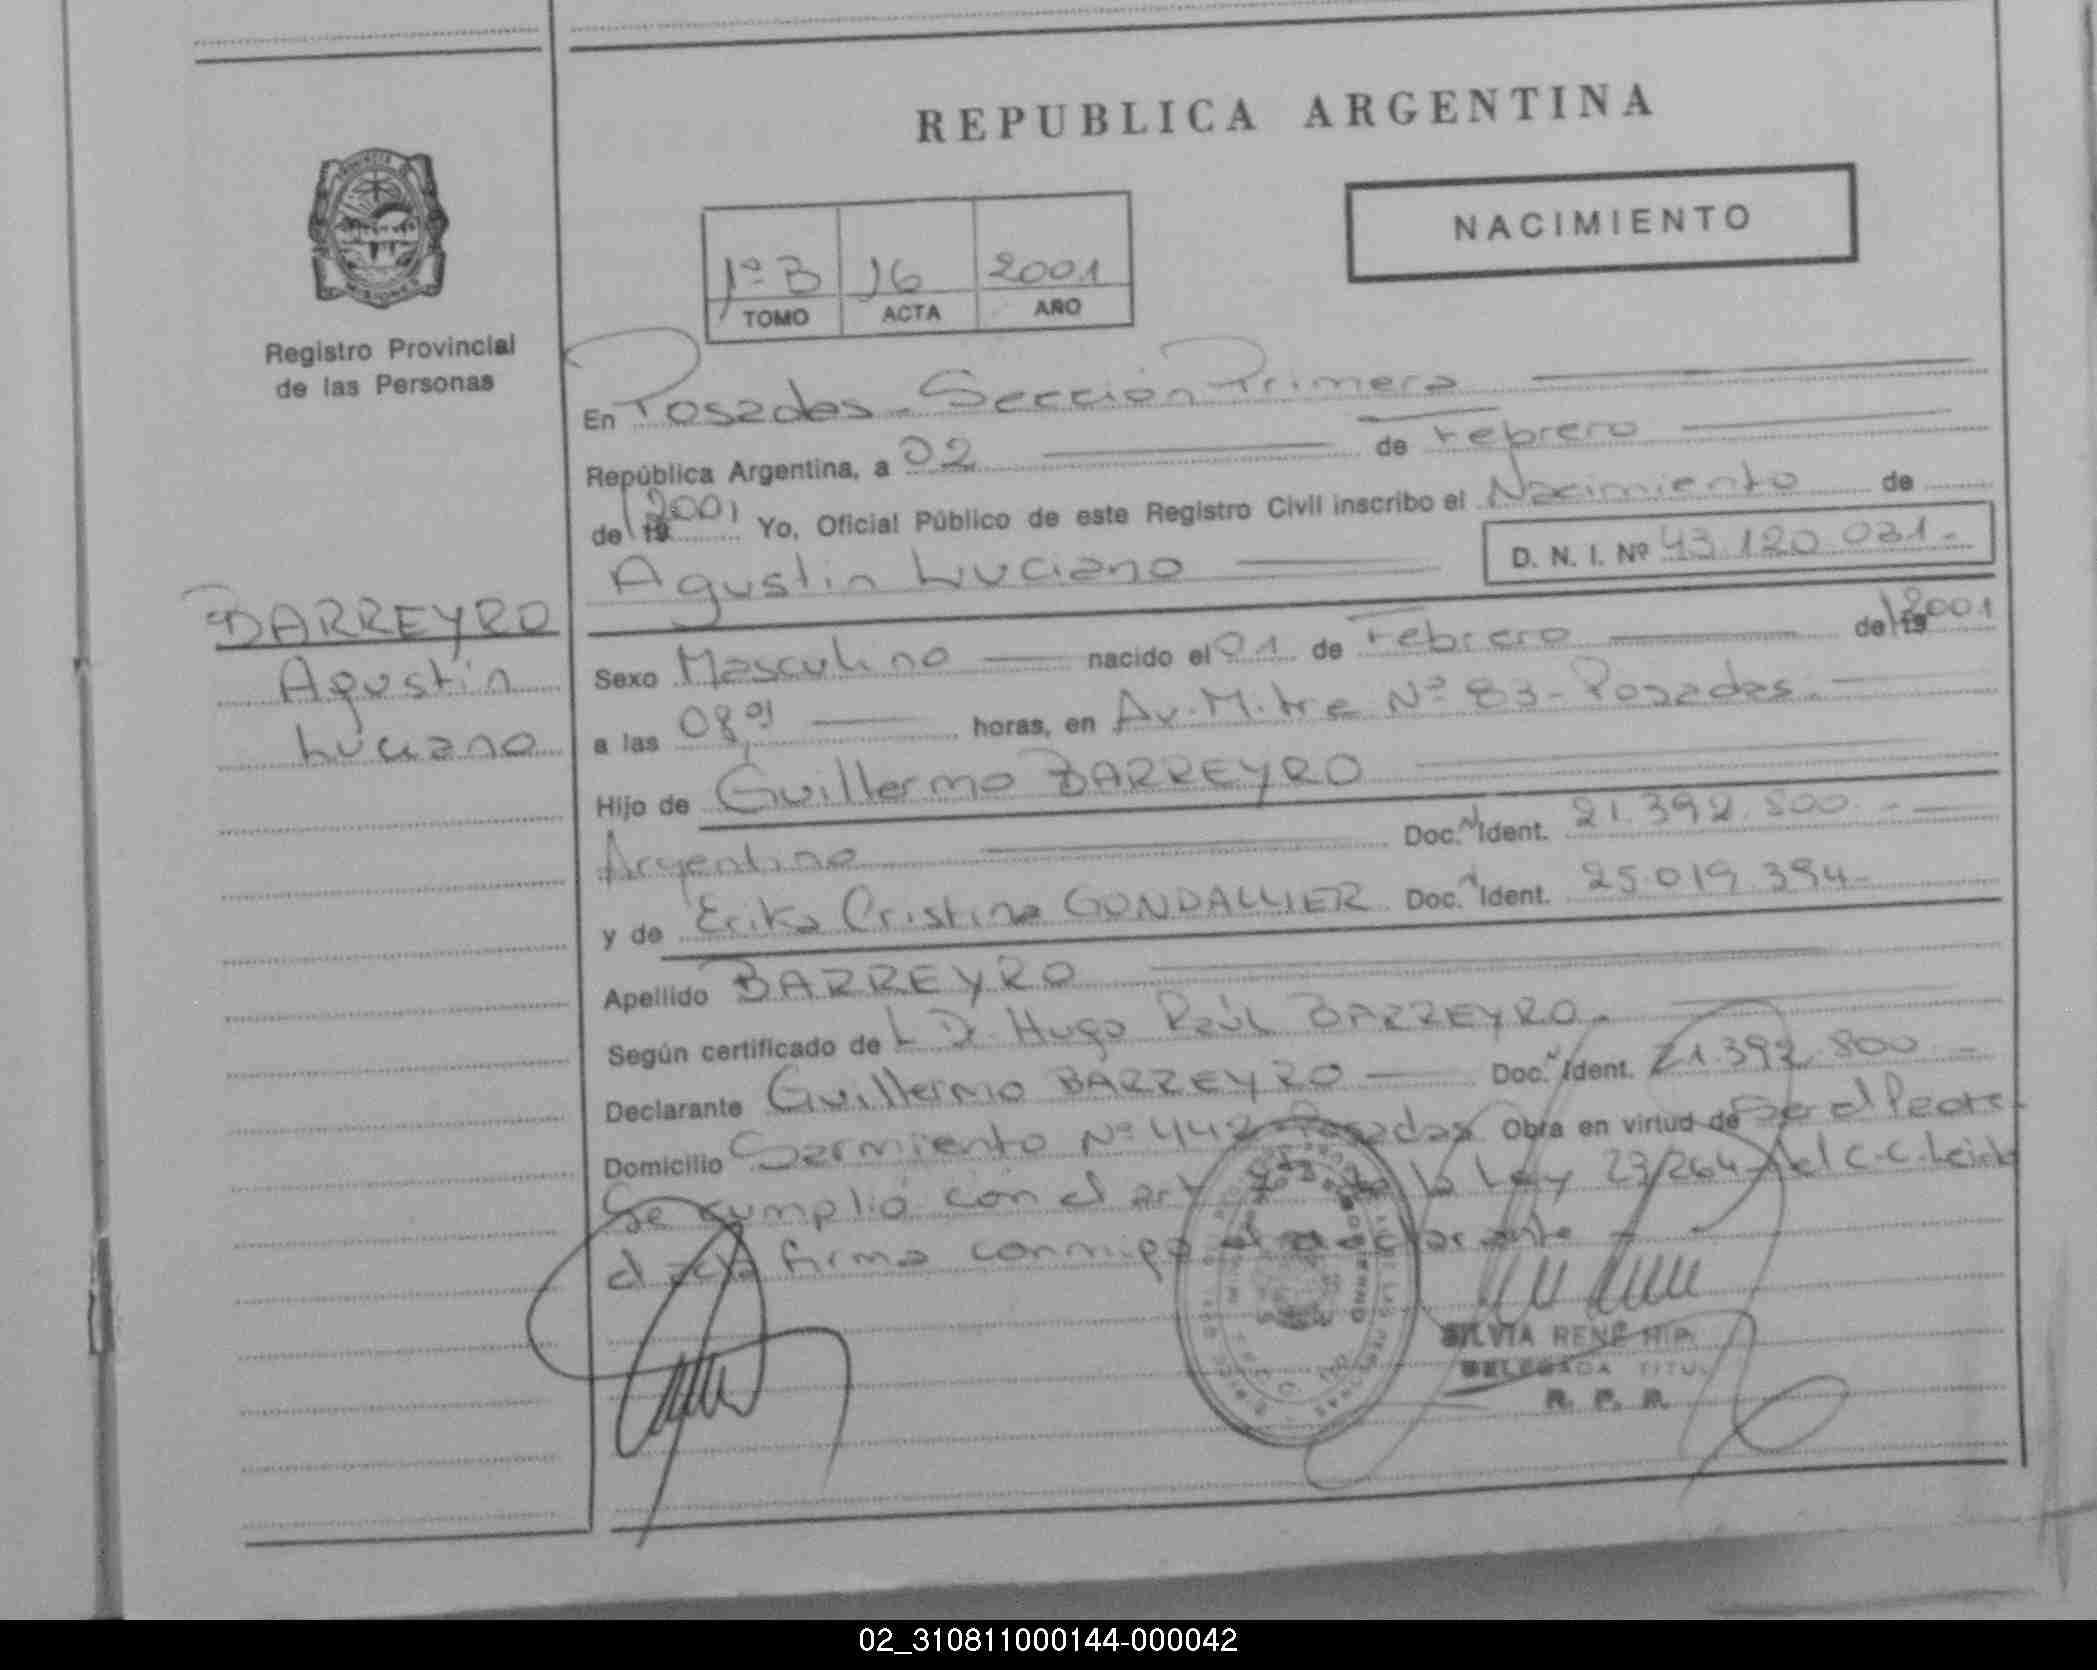 REPUBLICA ARGENTINA
NACIMIENTO
1º B 16 2001
TOMO ACTA AÑO
Registro Provincial
de las Personas
MISIONES
En Posadas - Sección Primera
República Argentina, a 02 de Febrero
de 19 2001 Yo, Oficial Público de este Registro Civil inscribo el Nacimiento de
Agustin Luciano D. N. I. Nº 43.120.031.-
BARREYRO
Agustín
Luciano
Sexo Masculino nacido el 01 de Febrero de 19 2001
a las 08,01 horas, en Av. Mitre Nº 83 - Posadas.
Hijo de Guillermo BARREYRO
Argentino Doc. N Ident. 21.392.800.-
y de Erika Cristina GONDALLIER Doc. N Ident. 25.019.394-
Apellido BARREYRO
Según certificado de L D. Hugo Raúl BARREYRO.
Declarante Guillermo BARREYRO Doc. N Ident. 21.392.800 -
Domicilio Sarmiento Nº 442 Posadas Obra en virtud de Ser el Padre
Se cumplió con el art de la Ley 23264 del C.C. Leída
el acta firma conmigo el declarante
SILVIA RENÉ
DELEGADA TITU
R. P. P.
02_310811000144-000042